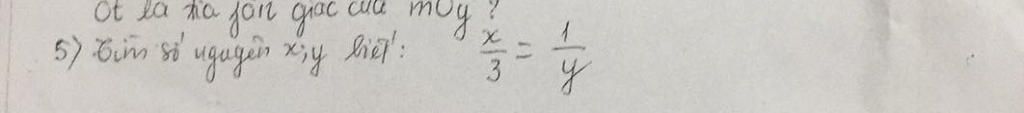 Ot là tia fân giác của mOy ?
5) Tìm số nguyên x;y biết : x/3 = 1/y